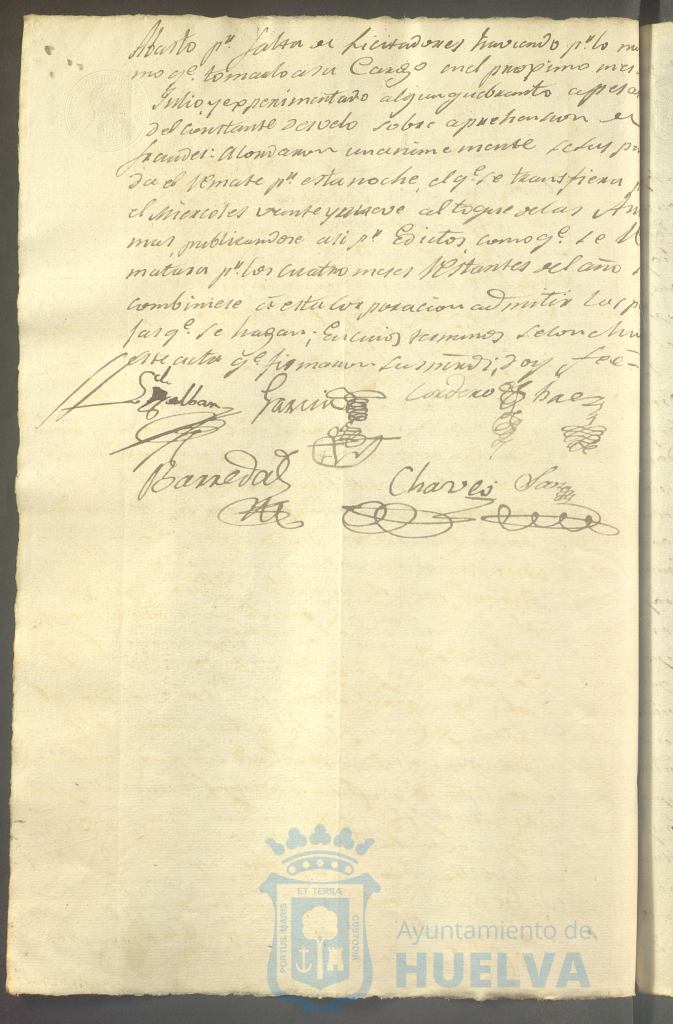 Abasto pr. falta de Licitadores haviendo pr. lo
mo qe. tomarlo a su Cargo en el proximo mes
Julio y experimentado algun quebranto apesar
del constante desvelo sobre aprehension de
fraudes: Acordaron unanimemente se suspen
da el Remate pr. esta noche, el qe. se transfiera
el Miercoles veinte y nueve al toque de las Ani
mas, publicandose asi pr. Edictos como qe. se Re
matara pr. los cuatro meses Restantes del año
combiniese á esta Corporacion admitir las
jas qe. se hagan; En cuios terminos se concluyo
este acto qe. firmaron sus mrds; doy fee=
Garcia Cordero Baez
Barreda Chaves
ET TERRÆ
PORTUS MARIS
CUSTODIA
Ayuntamiento de
HUELVA